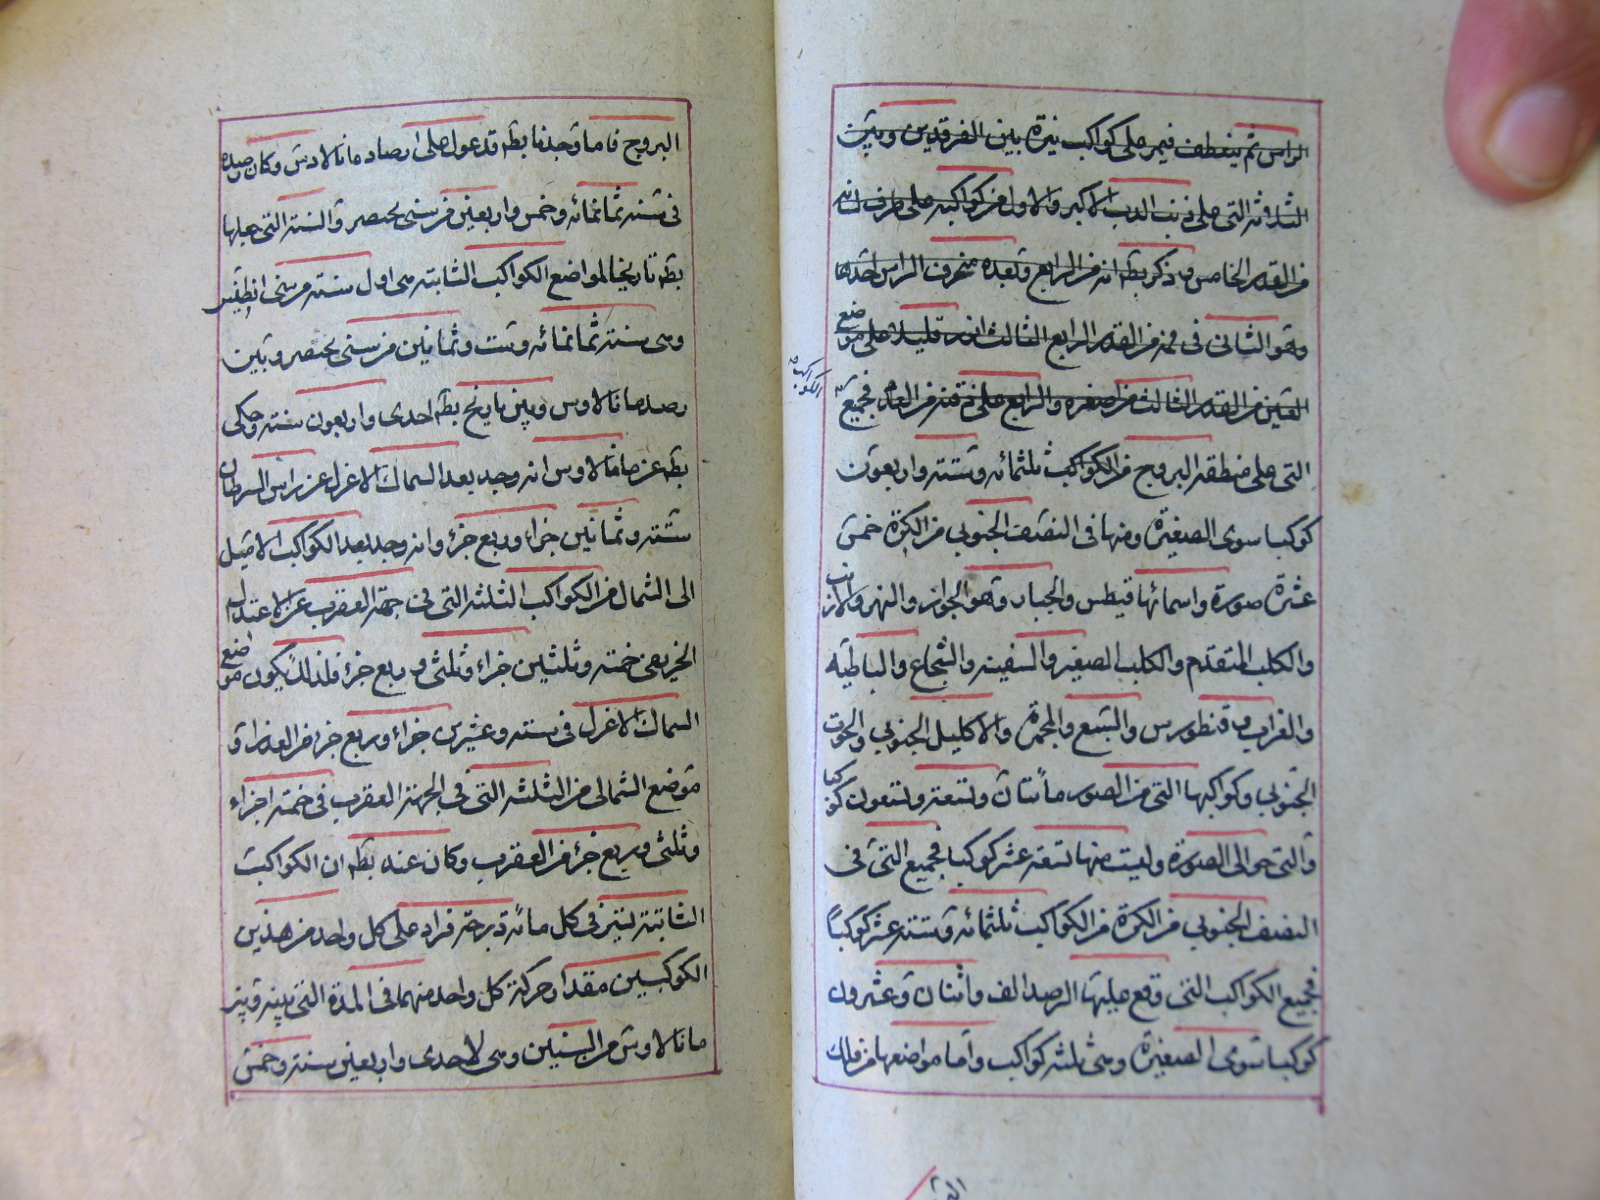 الراس ثم ينعطف فيمر على كواكب نيرة بين الفرقدين وبين
الثلثة التى على ذنب الدب الاكبر والاول من كواكبه على طرف لسانه
من القدر الخامس وذكر بطه انه من الرابع وبعده منحرف الراس احدها
وهو الثانى فى فمه من القدر الرابع الثالث ازيد قليلا على موضع
العين من القدر الثالث من اصغره والرابع على ذقنه من القدر فجميع
الكواكب
التى على منطقه البروج من الكواكب ثلثمائه وستته واربعون
كوكبا سوى الصغيرة ومنها فى النصف الجنوبي من الكرة خمس
عشرة صورة واسمائها قيطس والجبار وهو الجوزا والنهر والارنب
والكلب المتقدم والكلب الصغير والسفينه والشجاع والباطيه
والغراب وقنطورس والسبع والمجمرة والاكليل الجنوبي والحوت
الجنوبي وكواكبها التى من الصور مأتان وتسعة وتسعون كوكبا
والتى حوالى الصورة وليست منها تسعة عشر كوكبا فجميع التى فى
النصف الجنوبي من الكرة من الكواكب ثلثمائه وستته عشر كوكباً
فجميع الكواكب التى وقع عليها الرصد الف واثنان وعشرون
كوكبا سوى الصغيرة وهى ثلثه كواكب واما مواضعها من فلك
البروج فاما وجدنا بطه قد عول على ارصاد مانالاوس وكان رصده
فى سنه ثمانمائه وخمس واربعين من سنى بختنصر والسنه التى جعلها
بطه تاريخا لمواضع الكواكب الثابته هى اول سنته من سنى انطينس
وهى سنة ثمانمائه وست وثمانين من سنى بختنصر وبين
رصد مانالاوس وبين تاريخ بطه احدى واربعون سنته وحكى
بطه عن مانالاوس انه وجد بعد السماك الاعزل عن راس السرطان
ستته وثمانين جزاء وربع جزء وانه وجد بعد الكواكب الاميل
الى الشمال من الكواكب الثلثه التى فى جبهة العقرب عن الاعتدال
الخريفى خمسته وثلثين جزاء وثلثى وربع جزء فلذلك يكون موضع
السماك الاعزل فى ستته وعشرين جزاء وربع جزء من العذراء و
موضع الشمالى من الثلثه التى فى الجبهة العقرب فى خمسة اجزاء
وثلثى وربع جزء من العقرب وكان عند بطه ان الكواكب
الثابتة تسير فى كل مأئة درجة فزاد على كل واحد من هذين
الكوكبين مقدار حركة كل واحد منهما فى المدة التى بينه وبين
مانالاوس من السنين وهى لاحدى واربعين سنته وخمس